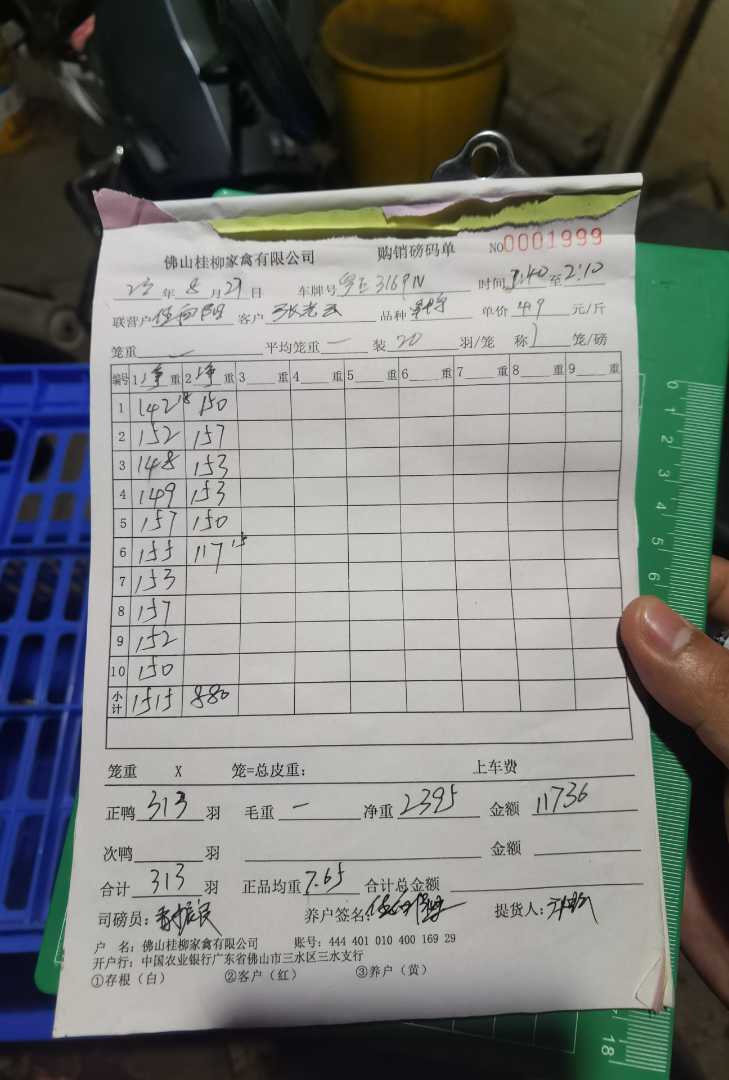 佛山桂柳家禽有限公司 购销磅码单 NO0001999
年 8 月 29 日 车牌号 3169N 时间 至 2:10
联营户 客户 张老 品种 单价 4.9 元/斤
笼重 平均笼重 一 装 20 羽/笼 称 1 笼/磅
编号 1 净 重 2 净 重 3 重 4 重 5 重 6 重 7 重 8 重 9 重
1 142 18 150
2 152 157
3 148 153
4 149 153
5 157 150
6 155 117 15
7 153
8 157
9 152
10 150
小计 1515 880
笼重 X 笼=总皮重: 上车费
正鸭 313 羽 毛重 一 净重 2395 金额 11736
次鸭 羽 金额
合计 313 羽 正品均重 7.65 合计总金额
司磅员: 养户签名: 提货人:
户 名: 佛山桂柳家禽有限公司 账号: 444 401 010 400 169 29
开户行: 中国农业银行广东省佛山市三水区三水支行
①存根(白) ②客户(红) ③养户(黄)
0 1 2 3 4 5 6
18